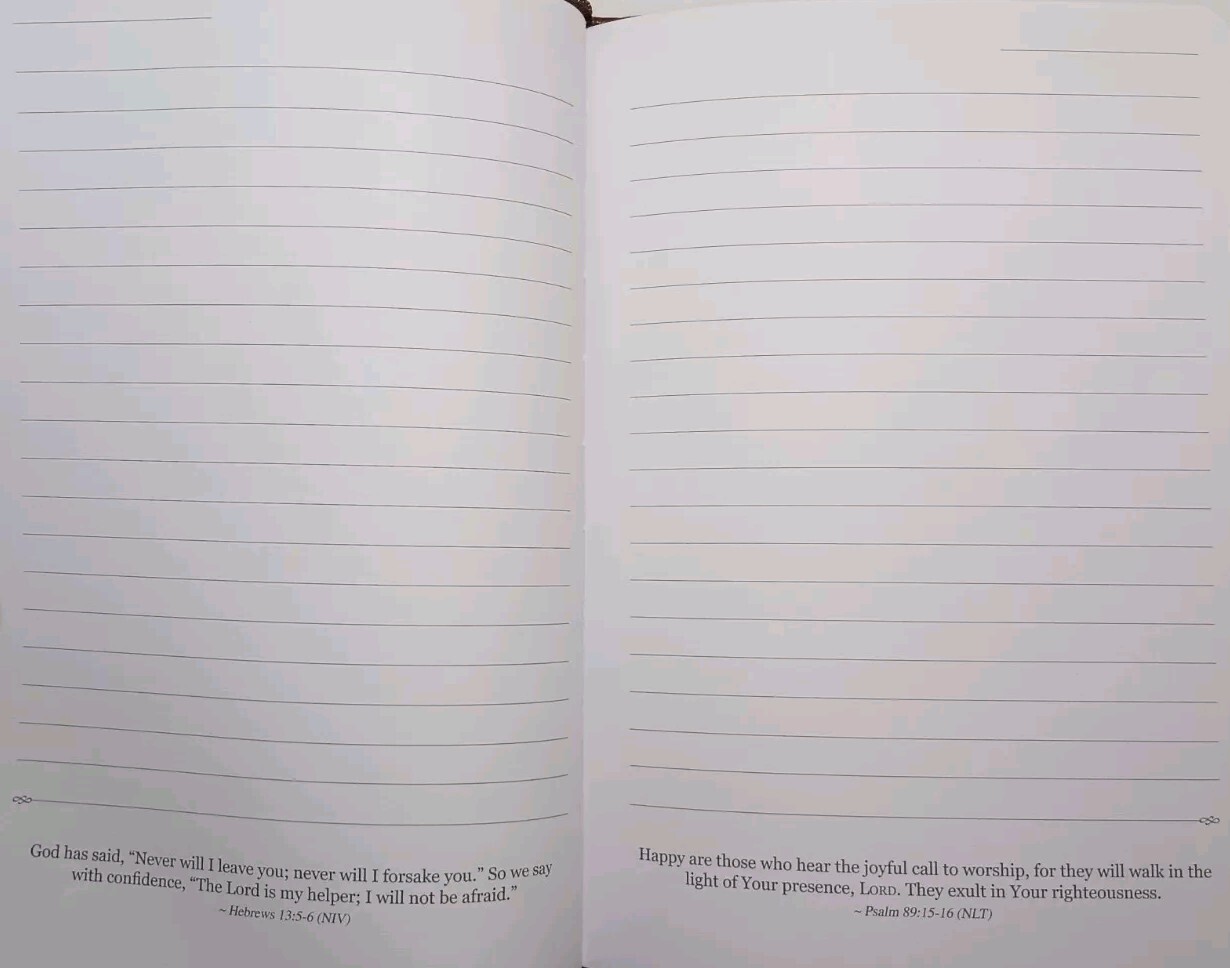 God has said, “Never will I leave you; never will I forsake you.” So we say
with confidence, “The Lord is my helper; I will not be afraid.”
~ Hebrews 13:5-6 (NIV)
Happy are those who hear the joyful call to worship, for they will walk in the
light of Your presence, LORD. They exult in Your righteousness.
~ Psalm 89:15-16 (NLT)